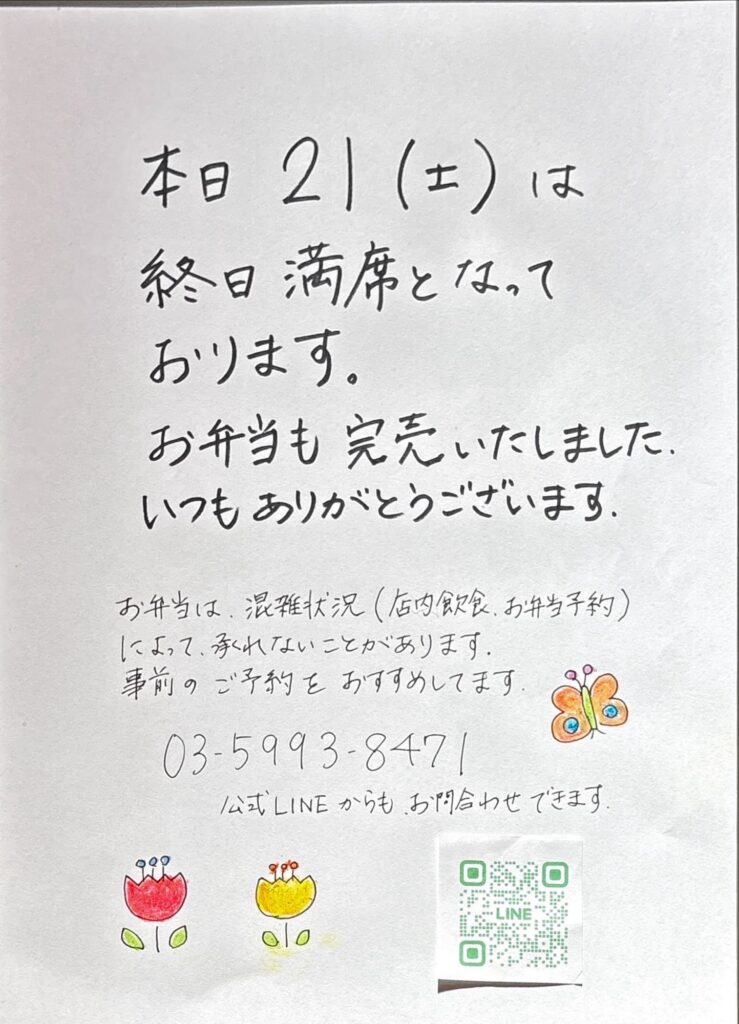 本日 21(土)は
終日 満席となって
おります。
お弁当も 完売いたしました.
いつもありがとうございます.
お弁当は、混雑状況(店内飲食、お弁当予約)
によって、承れないことがあります.
事前の ご予約を おすすめしてます.
03-5993-8471
公式LINEからも、お問合わせできます.
LINE